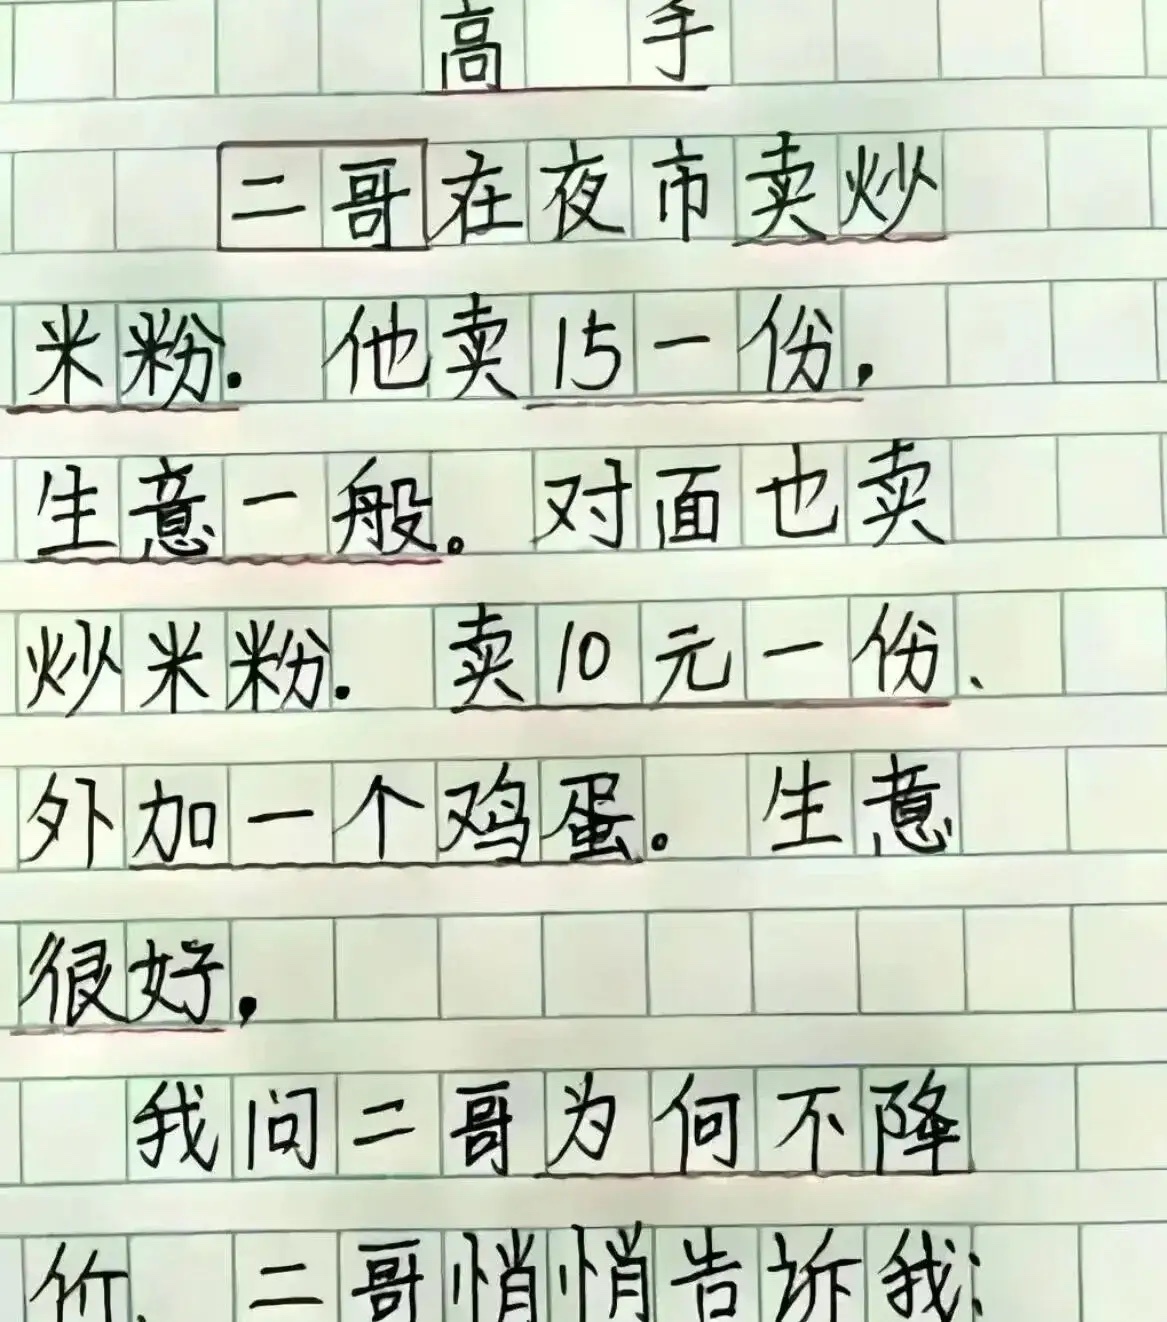 高 手
二哥在夜市卖炒
米粉. 他卖15一份.
生意一般。对面也卖
炒米粉. 卖10元一份、
外加一个鸡蛋。生意
很好,
我问二哥为何不降
价. 二哥悄悄告诉我: